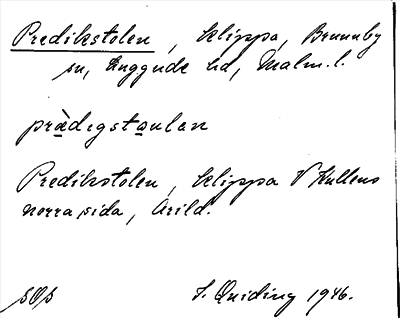 Predikstolen, klippa, Brunnby
sn, Luggude hd, Malm. l.
prædigstaulan
Predikstolen, klippa å Kullens
norra sida, Arild.
S. Quiding 1946.